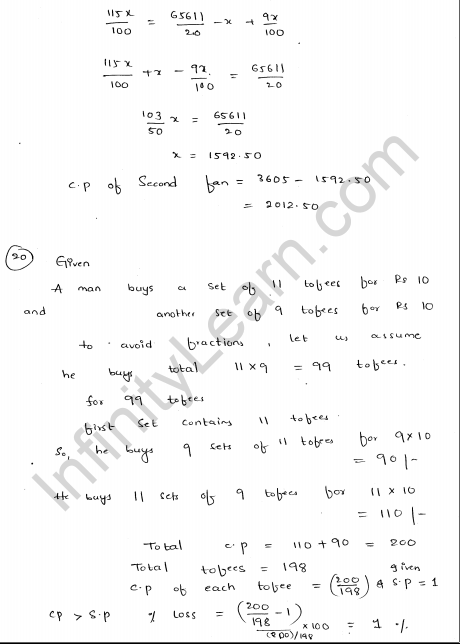 115x/100 = 65611/20 - x + 9x/100
115x/100 + x - 9x/100 = 65611/20
103/50 x = 65611/20
x = 1592.50
C.p of Second fan = 3605 - 1592.50
= 2012.50
20 Given
A man buys a set of 11 tofees for Rs 10
and another set of 9 tofees for Rs 10
to avoid fractions, let us assume
he buys total 11×9 = 99 tofees.
for 99 tofees
first set contains 11 tofees.
So, he buys 9 sets of 11 tofees for 9×10
= 90/-
He buys 11 sets of 9 tofees for 11×10
= 110/-
Total c.p = 110+90 = 200
Total tofees = 198
C.p of each tofee = (200/198) & given S.p = 1
CP > S.p % loss = (200/198 - 1)/(200)/198 × 100 = 1 %.
InfinityLearn.com